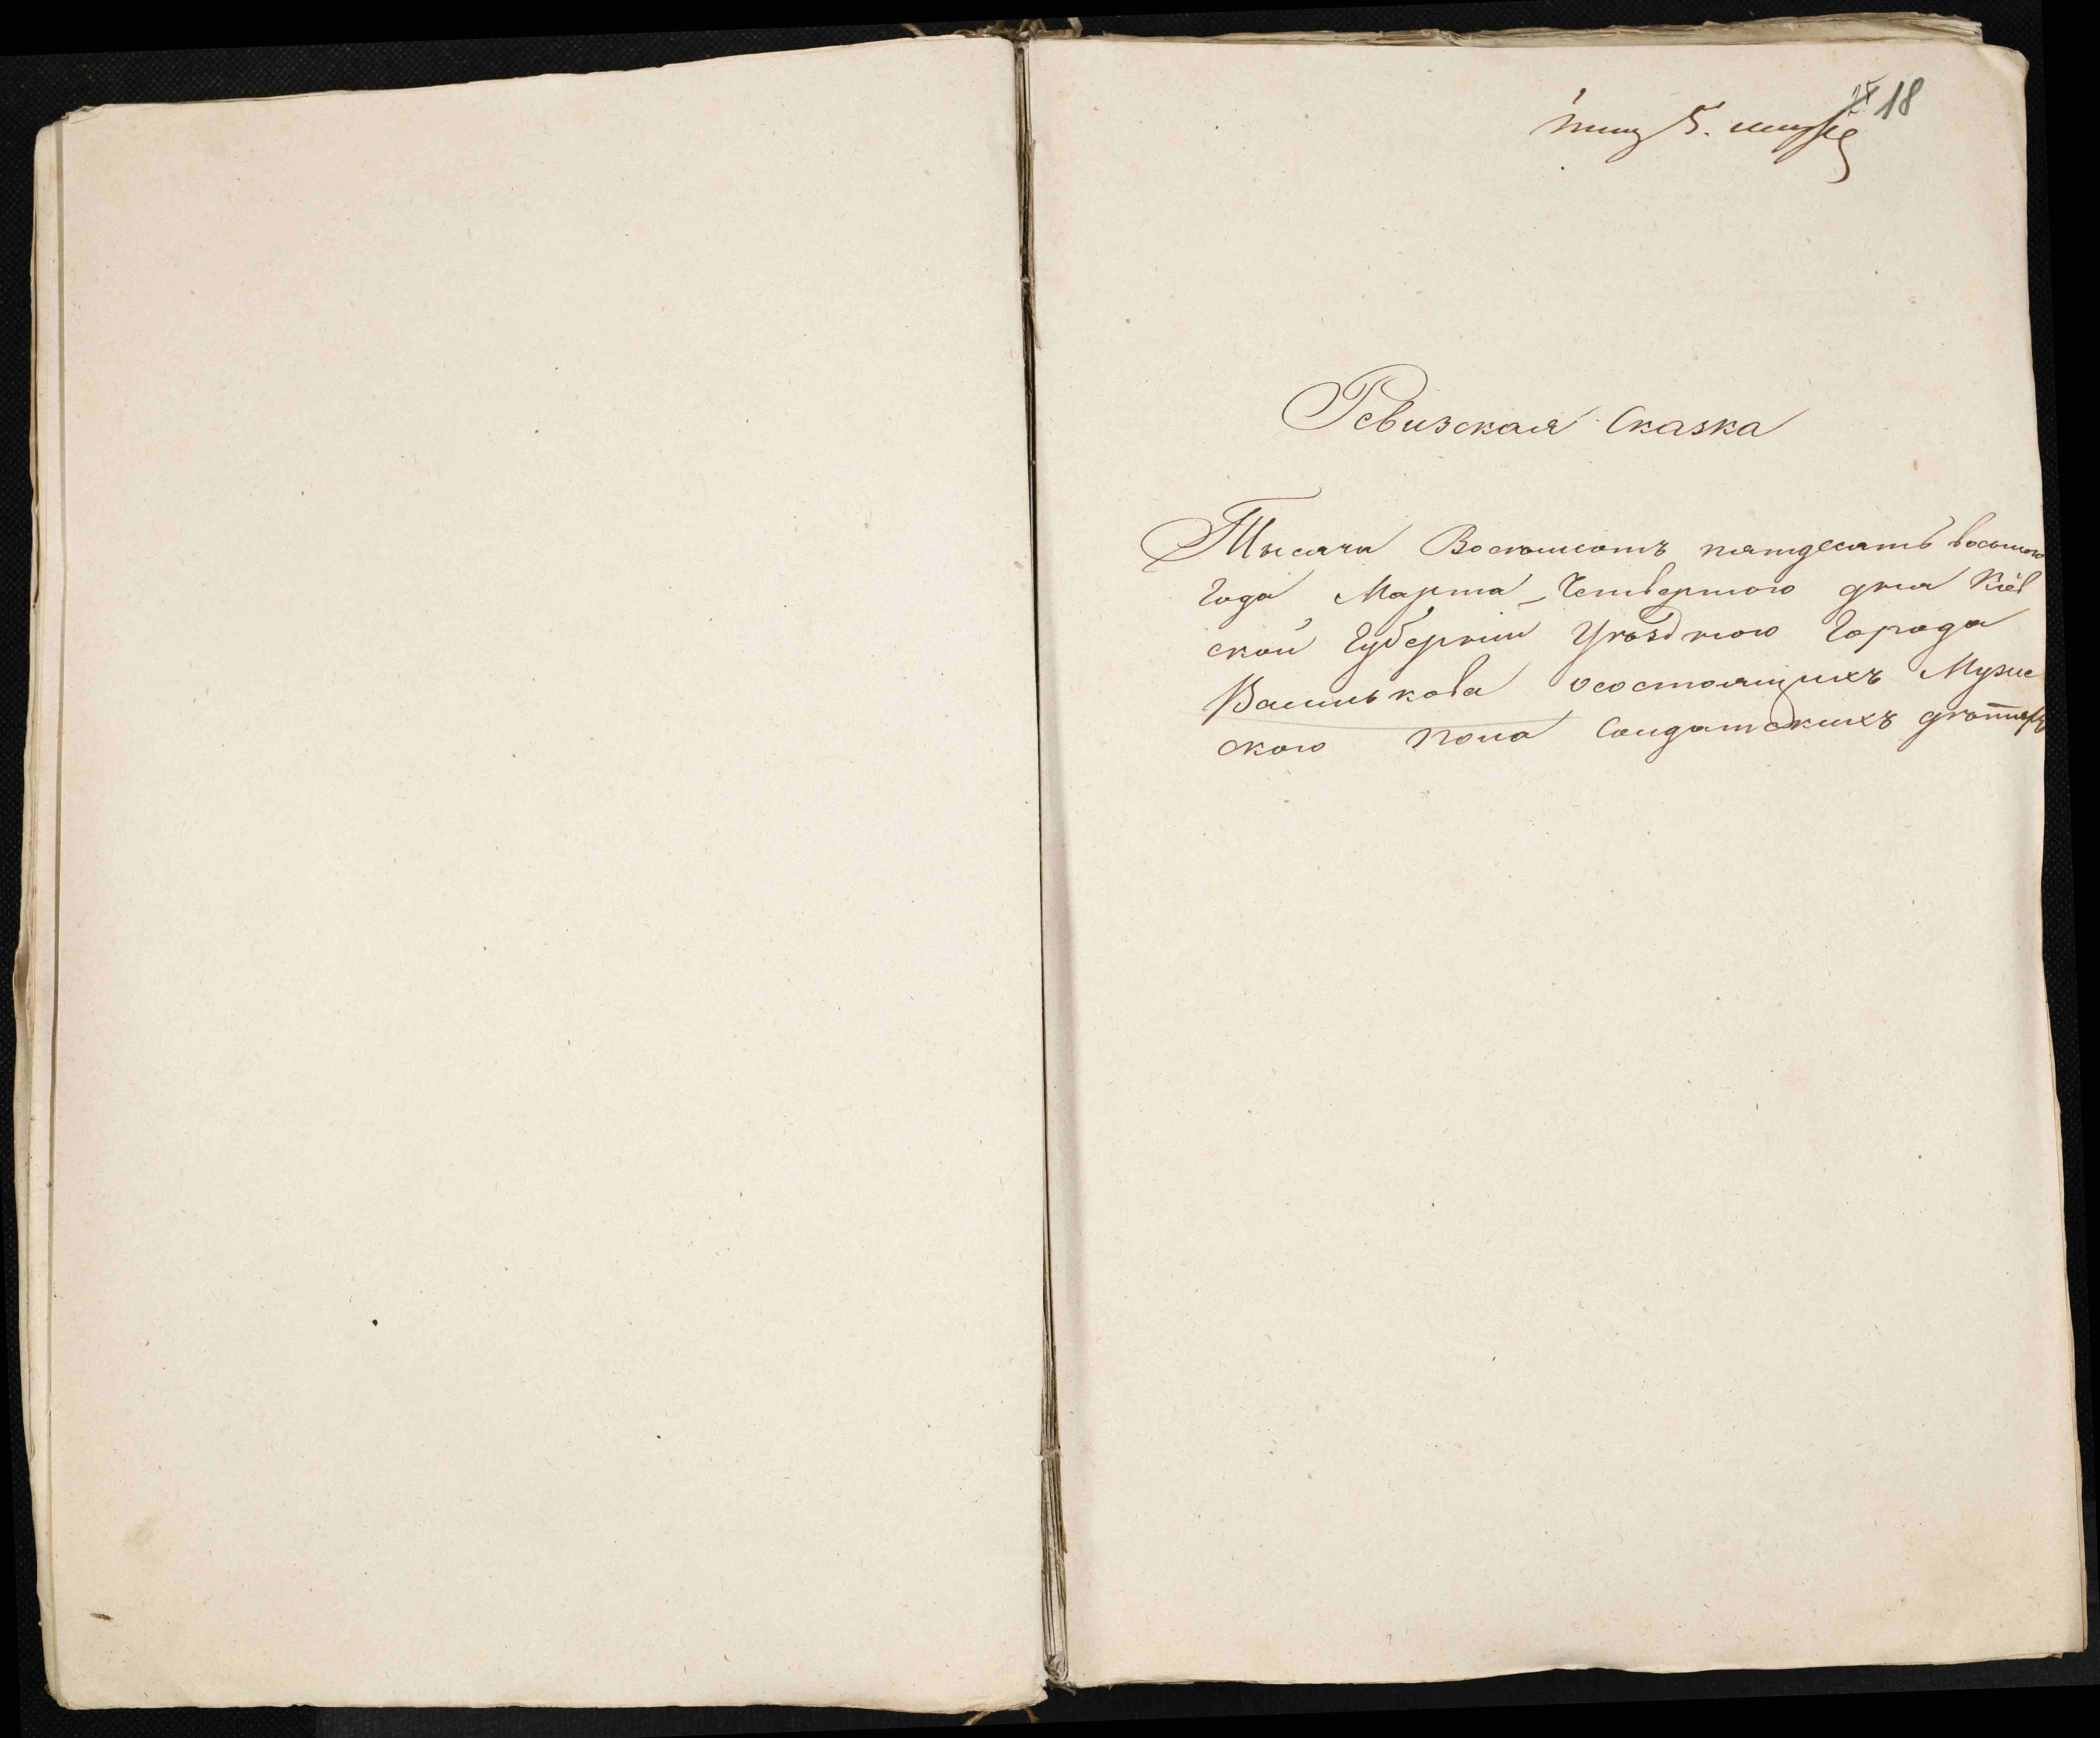 18
Ревизская Сказка
Тысяча Восемьсотъ пятдесятъ восьмого
Года Марта Четвертого дня Кіев
ской Губерніи Уѣзднаго Города
Василькова осостоящихъ Мужс
скаго пола Солдатскихъ дѣтяхъ